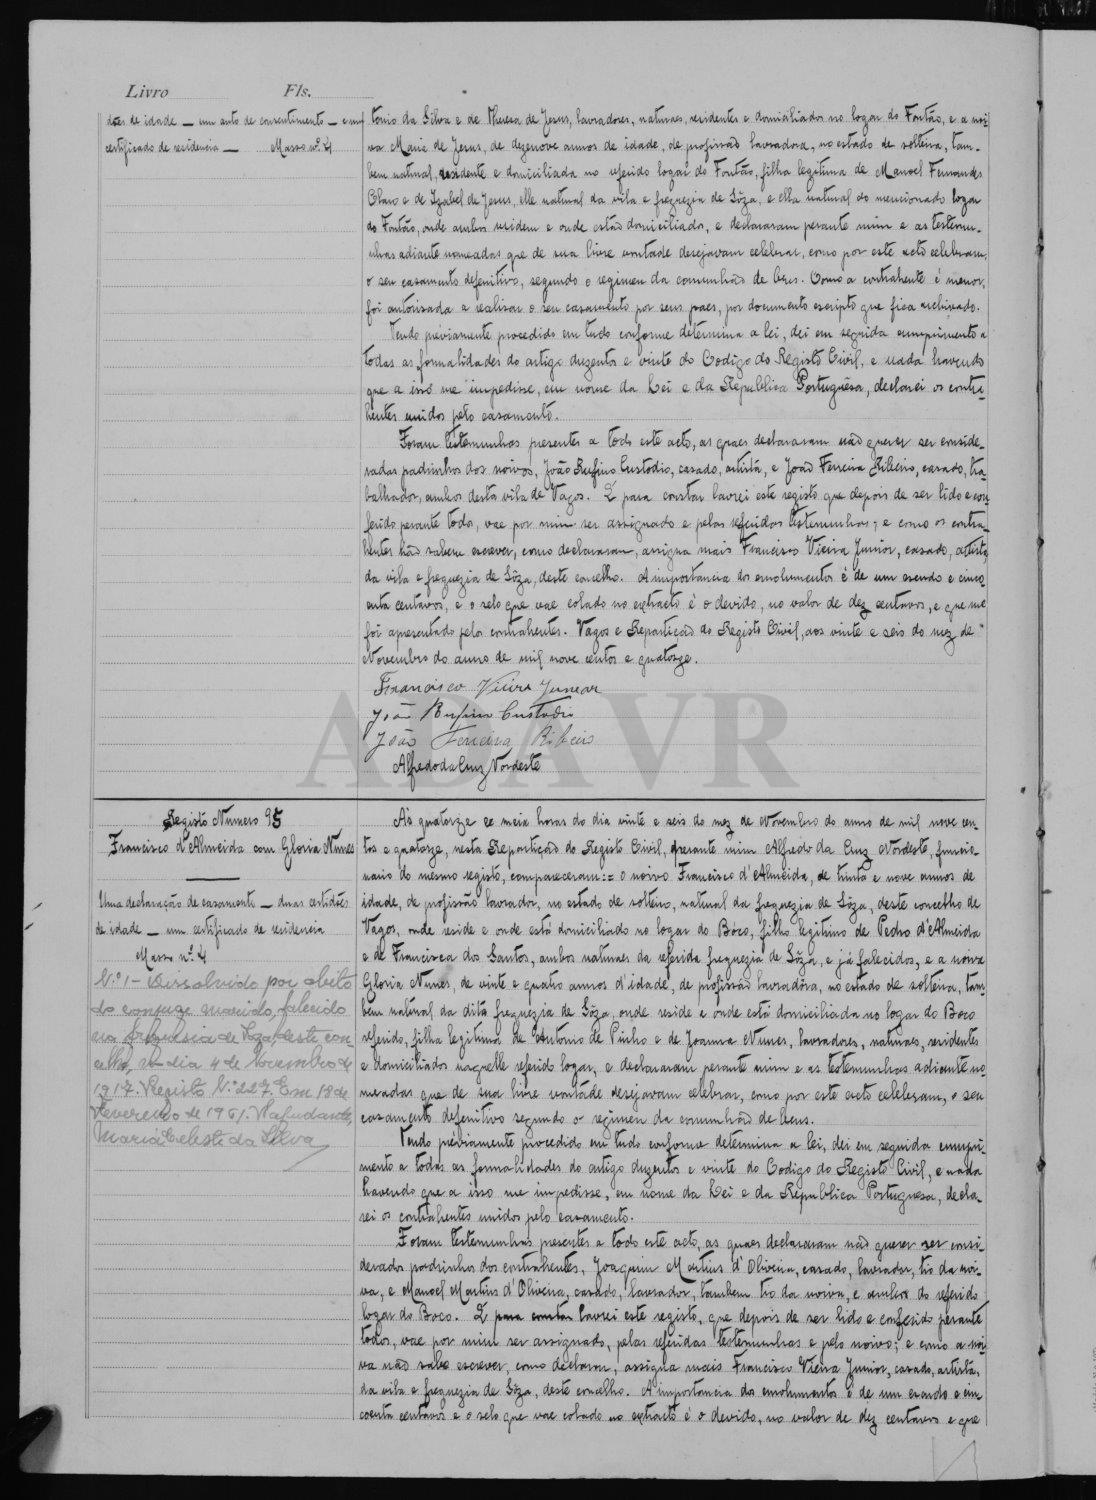 Livro Fls.
dões de idade — um auto de consentimento — e um
certificado de residencia — Masso nº 4
tonio da Silva e de Thereza de Jesus, lavradores, naturaes, residentes e domiciliados no logar do Fontão, e a noi-
va Maria de Jesus, de dezenove annos de idade, de profissão lavradora, no estado de solteira, tam-
bem natural, residente e domiciliada no referido logar do Fontão, filha legitima de Manoel Fernandes
Claro e de Izabel de Jesus, elle natural da vila e freguezia de Sôza, e ella natural do mencionado logar
do Fontão, onde ambos residem e onde estão domiciliados, e declararam perante mim e as testemu-
nhas adiante nomeadas que de sua livre vontade desejavam celebrar, como por este acto celebram,
o seu casamento defenitivo, segundo o regimen da comunhão de bens. Como a contrahente é menor,
foi autorisada a realisar o seu casamento por seus paes, por documento escripto que fica archivado.
Tendo préviamente procedido em tudo conforme determina a lei, dei em seguida cumprimento a
todas as formalidades do artigo duzentos e vinte do Codigo do Registo Civil, e nada havendo
que a isso me impedisse, em nome da Lei e da Republica Portuguêsa, declarei os contra-
hentes unidos pelo casamento.
Foram testemunhas presentes a todo este acto, as quaes declararam não querer ser conside-
radas padrinhos dos noivos, João Rufino Custodio, casado, artista, e João Ferreira Ribeiro, casado, tra-
balhador, ambos desta vila de Vagos. E para constar lavrei este registo, que depois de ser lido e con-
ferido perante todos, vae por mim ser assignado e pelas referidas testemunhas; e como os contra-
hentes não sabem escrever, como declararam, assigna mais Francisco Vieira Junior, casado, artista,
da vila e freguezia de Sôza, deste concelho. A importancia dos emolumentos é de um escudo e cinco-
enta centavos, e o selo que vae colado no extracto é o devido, no valor de dez centavos, e que me
foi apresentado pelos contrahentes. Vagos e Repartição do Registo Civil, aos vinte e seis do mez de
Novembro do anno de mil nove centos e quatorze.
Francisco Vieira Junear
João Rufino Custodio
João Ferreira Ribeiro
Alfredo da Cruz Nordeste
ADAVR
Registo Numero 95
Francisco d'Almeida com Gloria Nunes
Uma declaração de casamento — duas certidões
de idade — um certificado de residencia
Masso nº 4
N.º 1 - Dissolvido por obito
do conjuge marido, falecido
na freguesia de Soza, deste con-
celho, no dia 4 de Novembro de
1917. Registo N.º 227. Em 18 de
Fevereiro de 1961. A ajudante,
Maria Celeste da Silva
Às quatorze e meia horas do dia vinte e seis do mez de Novembro do anno de mil nove cen-
tos e quatorze, nesta Repartição do Registo Civil, perante mim Alfredo da Cruz Nordeste, funcio-
nario do mesmo registo, compareceram:= o noivo Francisco d'Almeida, de trinta e nove annos de
idade, de profissão lavrador, no estado de solteiro, natural da freguezia de Sôza, deste concelho de
Vagos, onde reside e onde está domiciliado no logar do Bôco, filho legitimo de Pedro d'Almeida
e de Francisca dos Santos, ambos naturaes da referida freguezia de Sôza, e já falecidos, e a noiva
Gloria Nunes, de vinte e quatro annos d'idade, de profissão lavradôra, no estado de solteira, tam-
bem natural da dita freguezia de Sôza, onde reside e onde está domiciliada no logar do Boco
referido, filha legitima de Antonio de Pinho e de Joanna Nunes, lavradores, naturaes, residentes
e domiciliados naquelle referido logar, e declararam perante mim e as testemunhas adiante no-
meadas que de sua livre vontade desejavam celebrar, como por este acto celebram, o seu
casamento defenitivo segundo o regimen da comunhão de bens.
Tendo préviamente procedido em tudo conforme determina a lei, dei em seguida cumpri-
mento a todas as formalidades do artigo duzentos e vinte do Codigo do Registo Civil, e nada
havendo que a isso me impedisse, em nome da Lei e da Republica Portuguesa, decla-
rei os contrahentes unidos pelo casamento.
Foram testemunhas presentes a todo este acto, as quaes declararam não querer ser consi-
derados padrinhos dos contrahentes, Joaquim Martins d'Oliveira, casado, lavrador, tio da noi-
va, e Manoel Martins d'Oliveira, casado, lavrador, tambem tio da noiva, e ambos do referido
logar do Boco. E para constar lavrei este registo, que depois de ser lido e conferido perante
todos, vae por mim ser assignado, pelas referidas testemunhas e pelo noivo; e como a noi-
va não sabe escrever, como declarou, assigna mais Francisco Vieira Junior, casado, artista,
da vila e freguezia de Sôza, deste concelho. A importancia dos emolumentos é de um escudo e cin-
coenta centavos e o selo que vae colado no extracto é o devido, no valor de dez centavos e que